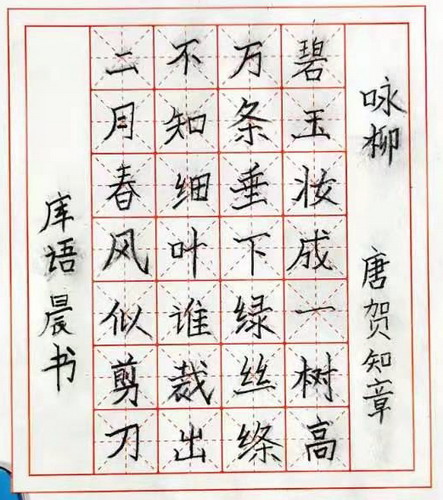 咏柳 唐贺知章
碧玉妆成一树高
万条垂下绿丝绦
不知细叶谁裁出
二月春风似剪刀
库语晨书